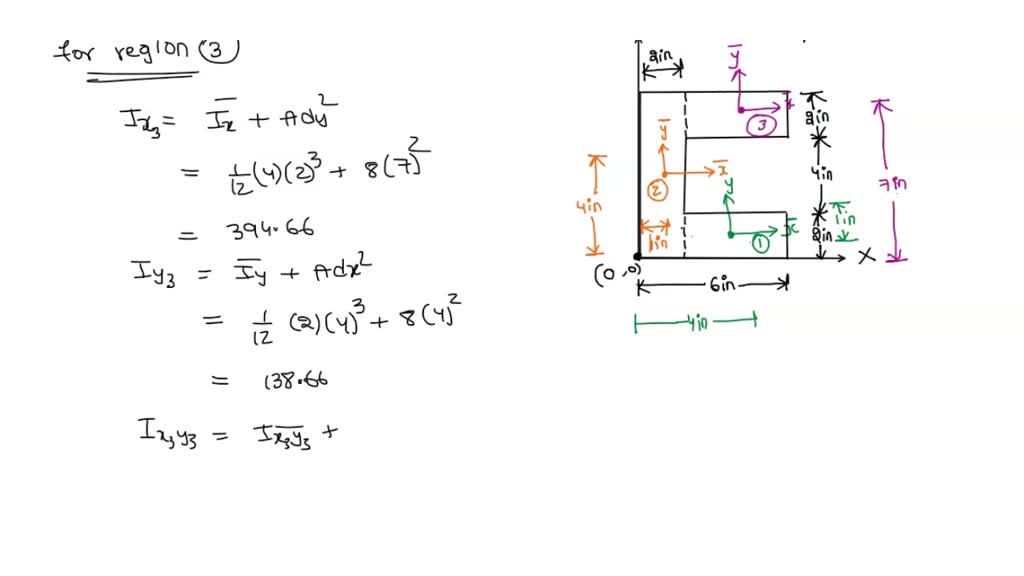 for region ③
Ix₃ = Īx̄ + Ady²
= 1/12 (4)(2)³ + 8(7)²
= 394.66
Iy₃ = Īy + Adx²
= 1/12 (2)(4)³ + 8(4)²
= 138.66
Ix₃y₃ = Īx₃y₃ +
2in
ȳ
x̄
③
2in
ȳ
x̄
②
4in
4in
7in
y
x̄
①
1in
2in
1in
X
(0,0)
6in
4in